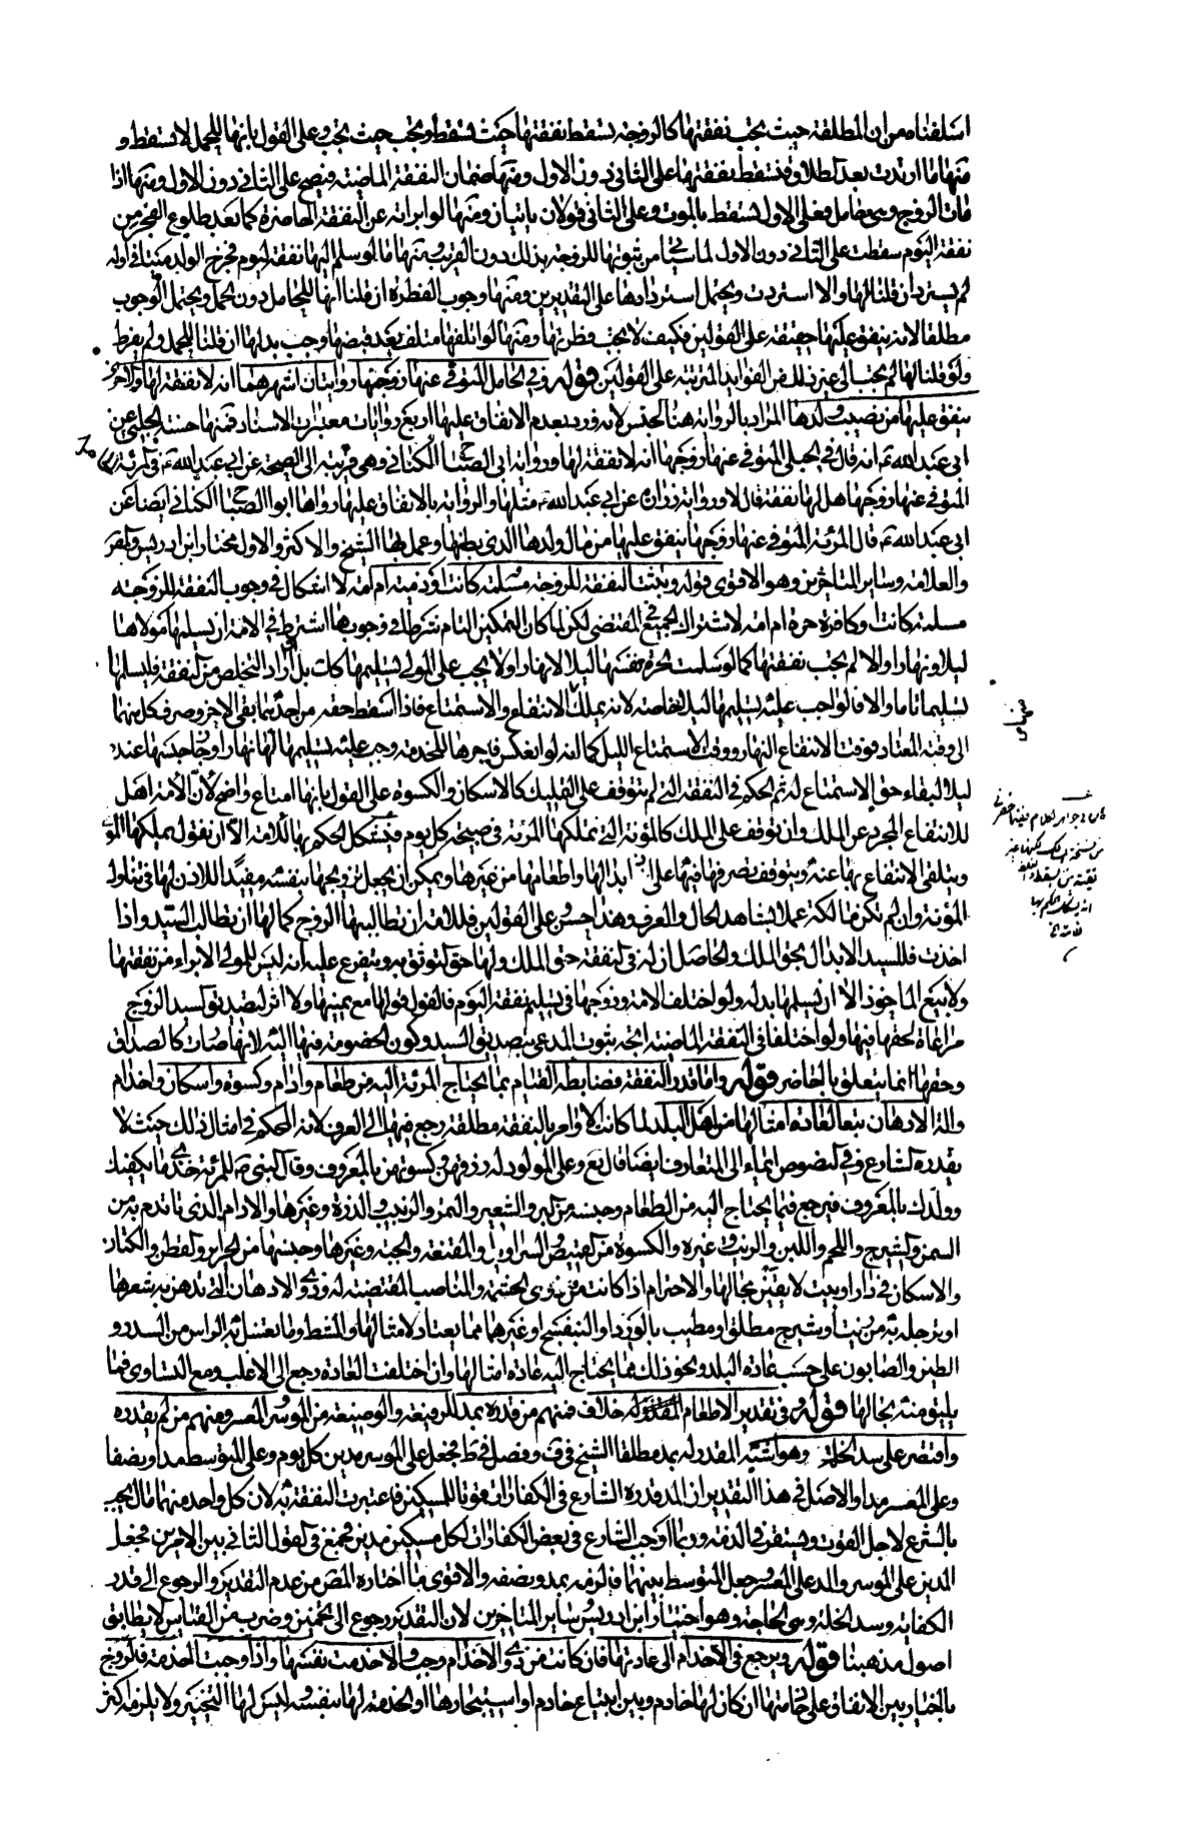 اسلفناه من ان المطلقة حيث يجب نفقتها كالزوجة تسقط نفقتها حيث تسقط وتجب حيث تجب وعلى القول بانها للحمل لا تسقط و
منها ما ارتدت بعد الطلاق فتسقط نفقتها على الثاني دون الاول ومنها ضمان النفقة الماضية فيصح على الثاني دون الاول ومنها اذا
مات الزوج وهي حامل فعلى الاول تسقط بالموت وعلى الثاني قولان ياتيان ومنها لو ابراته عن النفقة الحاضرة كما بعد طلوع الفجر من
نفقة اليوم سقطت على الثاني دون الاول لما سياتي من ثبوتها للزوجة بذلك دون القريب ومنها ما لو سلم اليها نفقة ليوم فخرج الولد ميتا في اوله
لم يسترد ان قلنا لها والا استردت ويحتمل استردادها على التقديرين ومنها وجوب الفطرة ان قلنا انها للحامل دون الحمل ويحتمل الوجوب
مطلقا لانه ينفق عليها حقيقة على القولين فكيف لا تجب فطرتها ومنها لو اتلفها متلف بعد قبضها وجب بدلها ان قلنا للحمل ولم يفرط
ولو قلنا لها لم يجب الى غير ذلك من الفوايد المترتبة على القولين قوله وفي الحامل المتوفى عنها زوجها روايتان اشهرهما انه لا نفقة لها والاخرى
ينفق عليها من نصيب ولدها المراد بالرواية هنا الجنس لانه ورد بعدم الانفاق عليها اربع روايات معتبرات الاسناد فمنها حسنة الحلبي عن
ابي عبد الله ع انه قال في الحبلى المتوفى عنها زوجها انه لا نفقة لها ورواية ابي الصباح الكناني وهي قريبة الى الصحة عن ابي عبد الله ع في المرئة
المتوفى عنها زوجها هل لها نفقة قال لا ورواية زرارة عن ابي عبد الله ع مثلها والرواية بالانفاق عليها رواها ابو الصباح الكناني ايضا عن
ابي عبد الله ع قال المرئة المتوفى عنها زوجها ينفق عليها من مال ولدها الذي في بطنها وعمل بها الشيخ والاكثر والاول مختار ابن ادريس والمص
والعلامة وساير المتاخرين وهو الاقوى قوله ويثبت النفقة للزوجة مسلمة كانت او ذمية ام امة لا اشكال في وجوب النفقة للزوجة
مسلمة كانت او كافرة حرة ام امة لاشتراك الجميع في المقتضي لكن لما كان التمكين التام شرطا في وجوبها اشترط في الامة ان يسلمها مولاها
ليلا ونهارا والا لم يجب نفقتها كما لو سلمت الحرة نفسها ليلا لا نهارا ولا يجب على المولى تسليمها كك بل ان اراد التخلص من النفقة فليسلمها
تسليما تاما والا فالواجب عليه تسليمها ليلا خاصة لانه يملك الانتفاع والاستمتاع فاذا اسقط حقه من احدهما بقي الاخر وصرف كل منهما
الى وقته المعتاد فوقت الانتفاع النهار ووقت الاستمتاع الليل كما انه لو انعكس فاجرها للخدمة وجب عليه تسليمها لها نهارا وجاز حبسها عنده
ليلا لبقاء حق الاستمتاع له ثم الحكم في النفقة التي لم يتوقف على التمليك كالاسكان والكسوة على القول بانها امتاع واضح لان الامة اهل
للانتفاع المجرد عن الملك وان توقف على الملك كالمؤنة التي تملكها المرئة في صبيحة كل يوم فيشكل الحكم بها للامة الا ان نقول بملكها المولى
ويتلقى الانتفاع بها عنه ويتوقف تصرفها فيها على ابدالها واطعامها من غيرها ويمكن ان يجعل تزويجها بنفسه مفيدا للاذن لها في تناول
المؤنة وان لم تكن مالكة عملا بشاهد الحال والعرف وهذا حسن وعلى القولين فللامة ان تطالب بها الزوج كما لها ان تطالب السيد واذا
اخذت فللسيد الابدال بحق الملك والحاصل ان له في النفقة حق الملك ولها حق التوثق به ويتفرع عليه انه ليس للمولى الابراء من نفقتها
ولا بيع الماخوذ الا ان يسلمها بدله ولو اختلف الامة وزوجها في تسليم نفقة اليوم فالقول قولها مع يمينها ولا اثر لتصديق السيد الزوج
مراعاة لحقها فيها ولو اختلفا في النفقة الماضية اتجه ثبوت المدعى بتصديق السيد وكون الخصومة فيها اليه لانها صارت كالصداق
وحقها انما يتعلق بالحاضر قوله واما قدر النفقة فضابطه القيام بما يحتاج المرئة اليه من طعام وادام وكسوة واسكان واخدام
والة الادهان تبعا لعادة امثالها من اهل البلد لما كانت الاوامر بالنفقة مطلقة رجع فيها الى العرف لانه المحكم في امثال ذلك حيث لا
يقدره الشارع وفي النصوص ايماء الى المتعارف ايضا قال تع وعلى المولود له رزقهن وكسوتهن بالمعروف وقال النبي ص للمرئة خذي ما يكفيك
وولدك بالمعروف فيرجع فيما يحتاج اليه من الطعام وجنسه من البر والشعير والتمر والزبيب والذرة وغيرها والادام الذي تاتدم به من
السمن والشيرج واللحم واللبن والزيت وغيره والكسوة من القميص والسراويل والمقنعة والجبة وغيرها وجنسها من الحرير والقطن والكتان
والاسكان في دار او بيت لايقين بحالها والاخدام اذا كانت من ذوي الحشمة والمناصب المقتضية له والة الادهان التي تدهن به شعرها
او ترجله به من زيت او شيرج مطلق او مطيب بالورد او البنفسج او غيرهما مما يعتاد لامثالها والمشط وما يغتسل به الراس من السدر و
الطين والصابون على حسب عادة البلد ونحو ذلك مما يحتاج اليه عادة امثالها وان اختلفت العادة رجع الى الاغلب ومع التساوي فما
يليق منه بحالها قوله وفي تقدير الاطعام خلاف فمنهم من قدره بمد للرفيعة والوضيعة من الموسر والمعسر ومنهم من لم يقدره
واقتصر على سد الخلة وهو اشبه المقدر له بمد مطلقا الشيخ في ف وفصل في ط فجعل على الموسر مدين كل يوم وعلى المتوسط مدا ونصفا
وعلى المعسر مدا والاصل في هذا التقدير ان المد قدره الشارع في الكفارات قوتا للمسكين فاعتبرت النفقة به لان كل واحد منهما مال يجب
بالشرع لاجل القوت ويستقر في الذمة وربما اوجب الشارع في بعض الكفارات لكل مسكين مدين فجمع في القول الثاني بين الامرين فجعل
المدين على الموسر والمد على المعسر وجعل المتوسط بينهما فالزمه بمد ونصف والاقوى ما اختاره المص من عدم التقدير والرجوع الى قدر
الكفاية وسد الخلة وهي الحاجة وهو اختيار ابن ادريس وساير المتاخرين لان التقدير رجوع الى تخمين وضرب من القياس لا يطابق
اصول مذهبنا قوله ويرجع في الاخدام الى عادتها فان كانت من ذوي الاخدام وجب والا خدمت نفسها واذا وجبت الخدمة فالزوج
بالخيار بين الانفاق على خادمتها ان كان لها خادم وبين ابتياع خادم او استيجارها او الخدمة لها بنفسه وليس لها التخيير ولا يلزمه اكثر